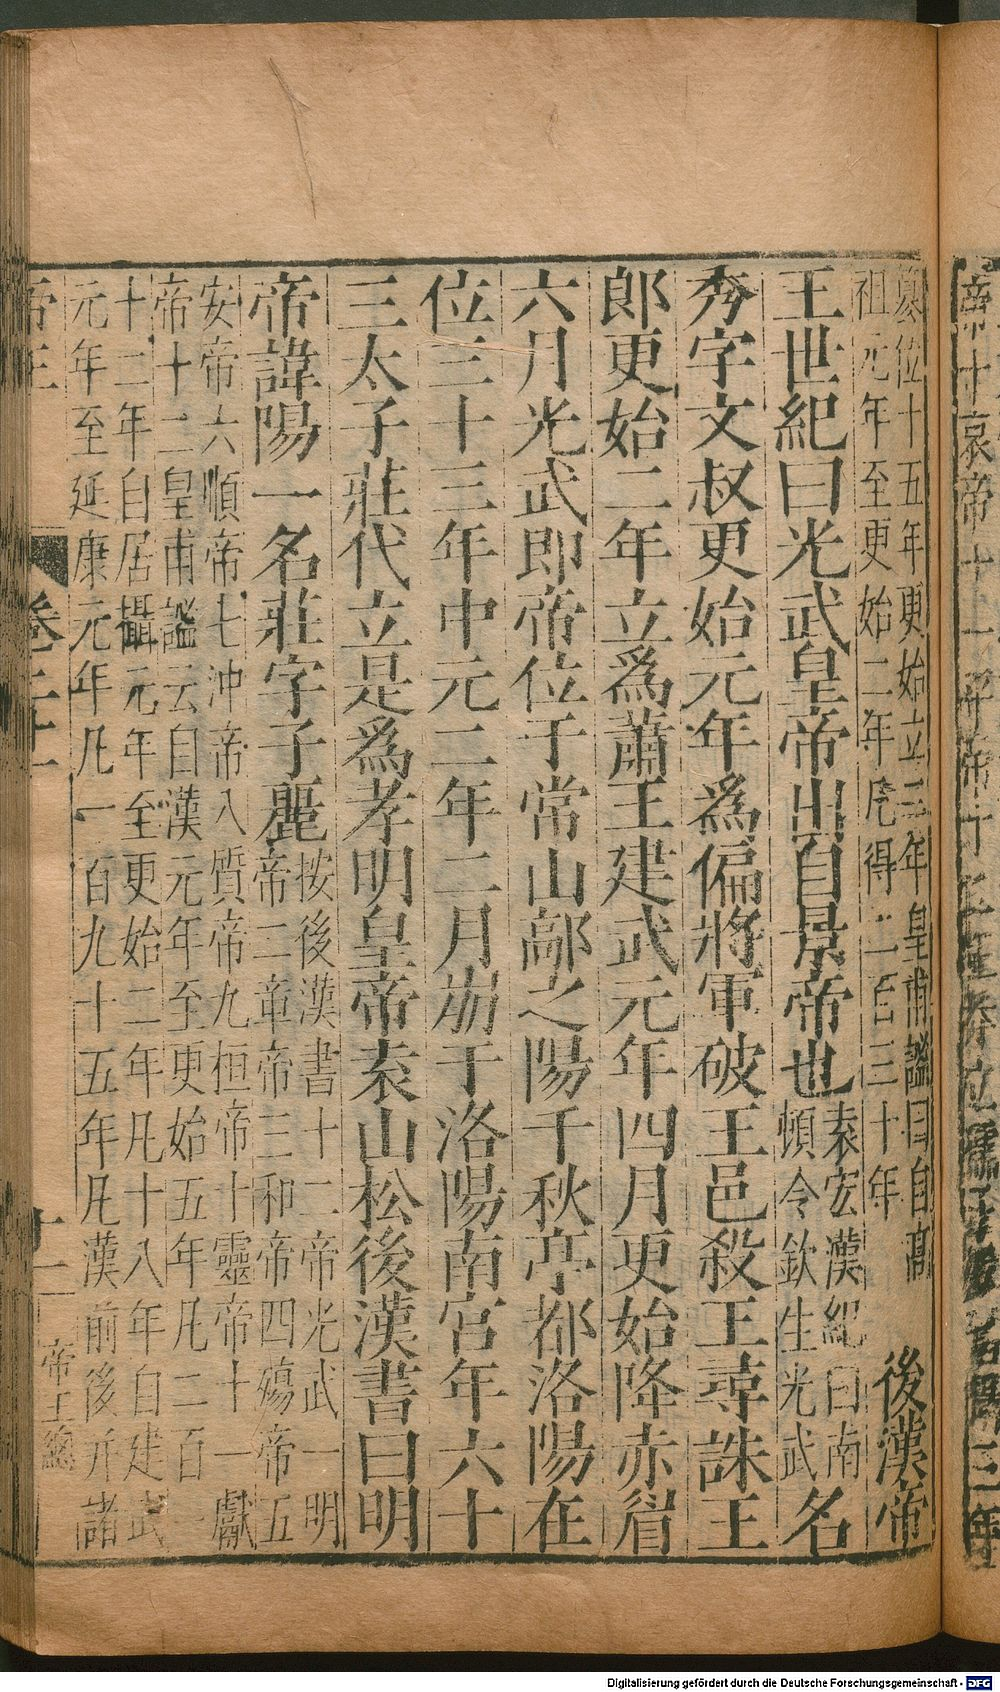 篡位十五年更始立三年皇甫謐曰自高
祖元年至更始二年凡得二百三十年
後漢帝
王世紀曰光武皇帝出自景帝也
袁宏漢紀曰南
頓令欽生光武
名
秀字文叔更始元年爲偏將軍破王邑殺王尋誅王
郎更始二年立爲蕭王建武元年四月更始降赤眉
六月光武即帝位于常山鄗之陽千秋亭都洛陽在
位三十三年中元二年二月崩于洛陽南宮年六十
三太子莊代立是爲孝明皇帝袁山松後漢書曰明
帝諱陽一名莊字子麗
按後漢書十二帝光武一明
帝二章帝三和帝四殤帝五
安帝六順帝七沖帝八質帝九桓帝十靈帝十一獻
帝十二皇甫謐云自漢元年至更始五年凡二百一
十二年自居攝元年至更始二年凡十八年自建武
元年至延康元年凡一百九十五年凡漢前後并諸
帝三
卷二十一
十一
帝王總
Digitalisierung gefördert durch die Deutsche Forschungsgemeinschaft - DFG